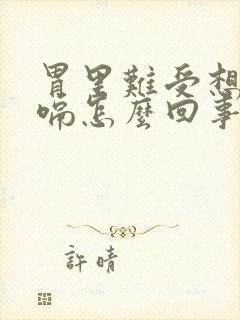 胃里難受想
喘怎麼回事
許晴